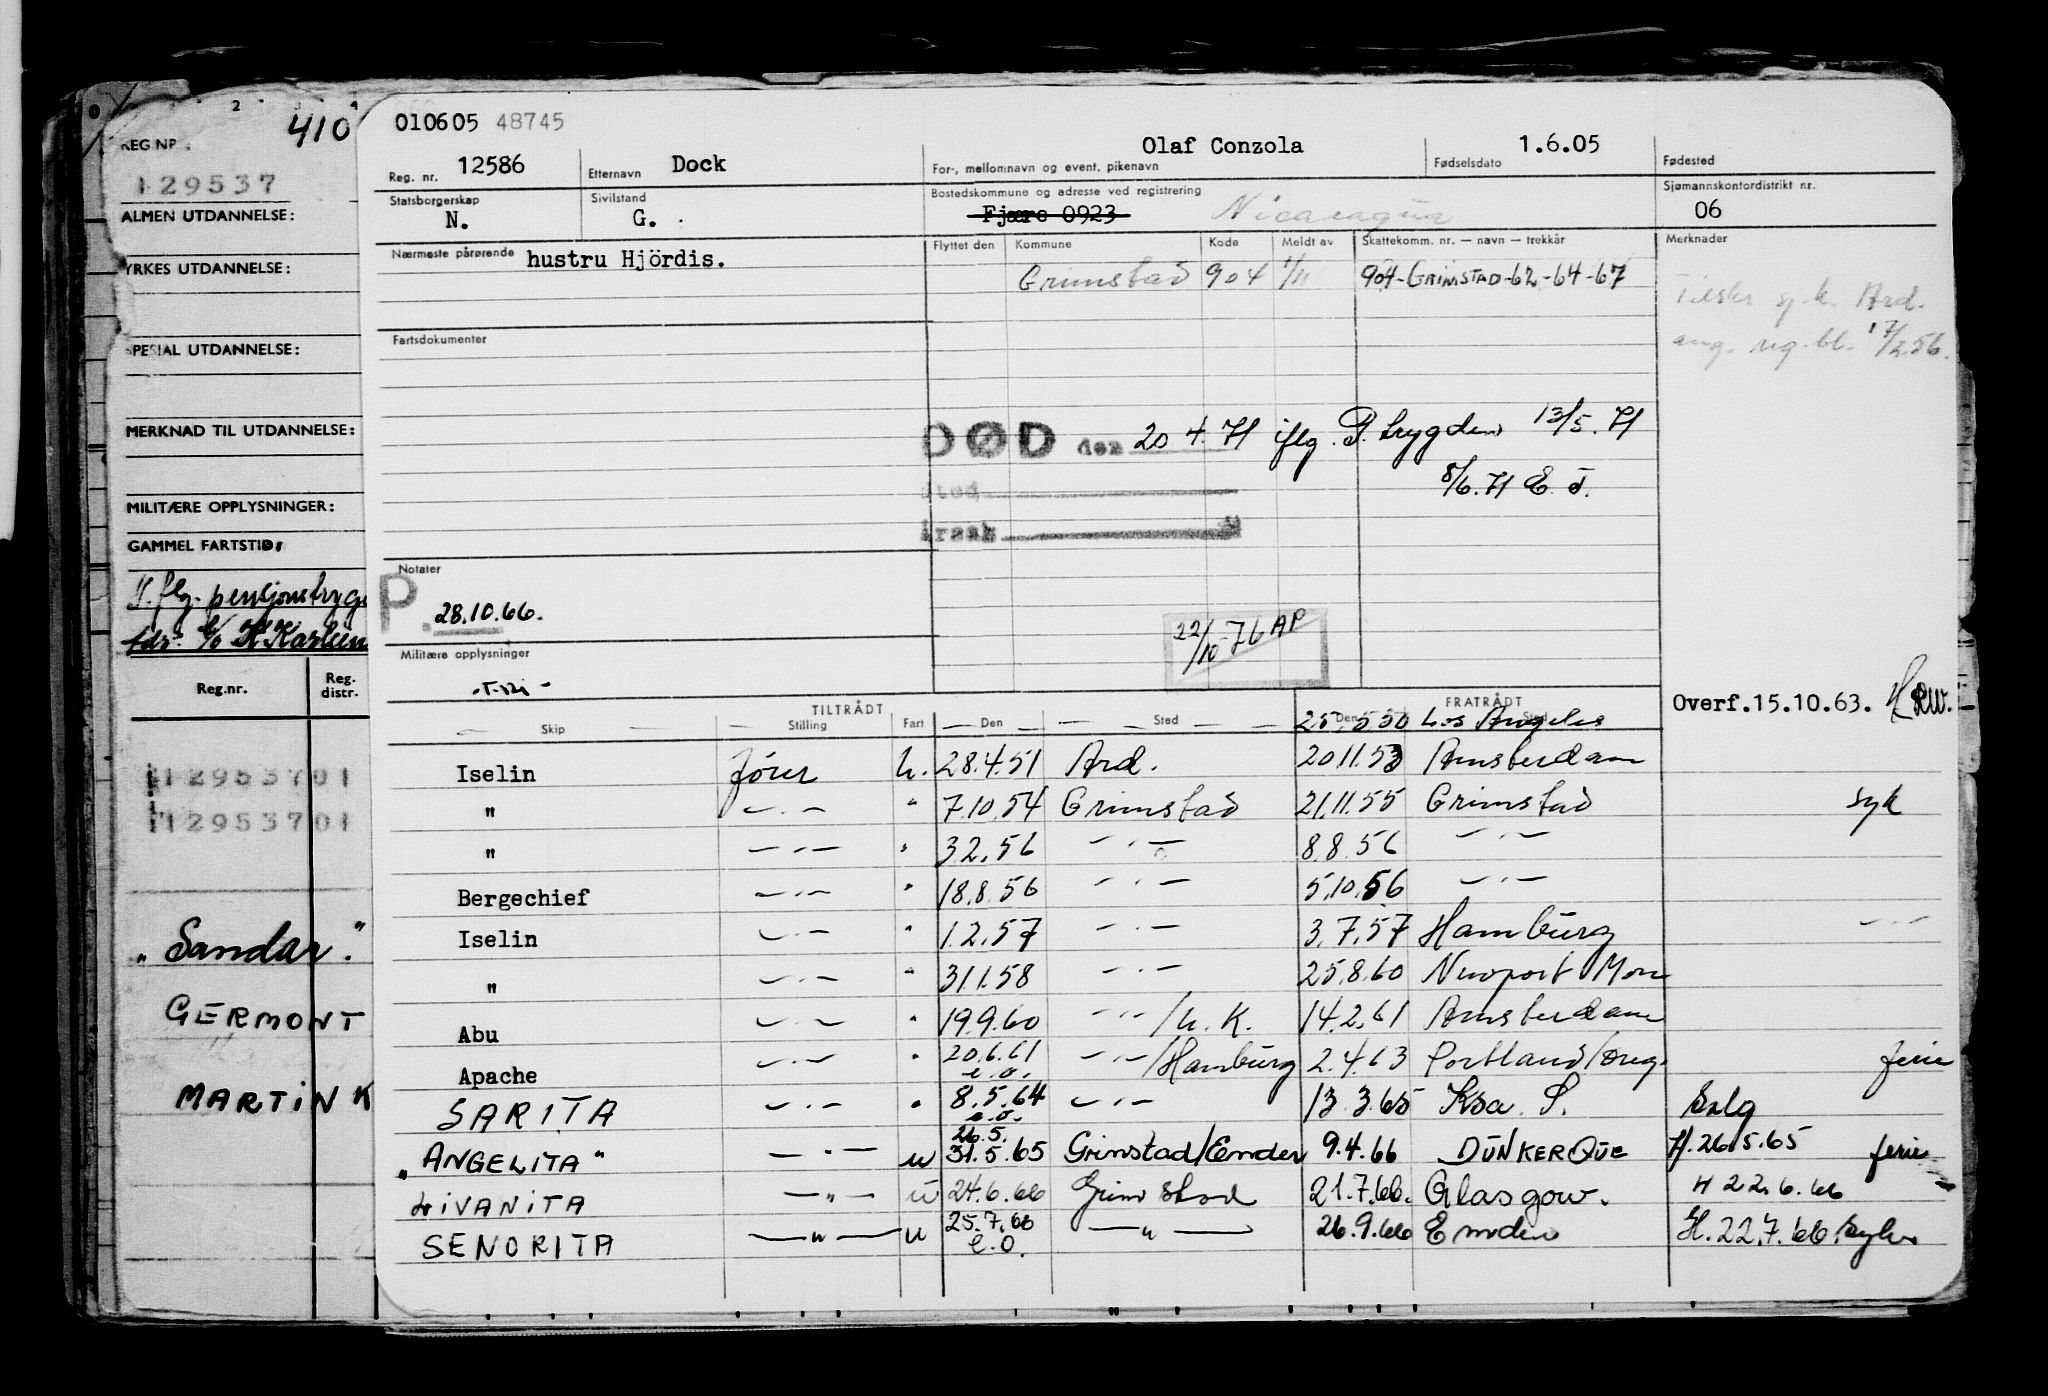 2 3 4
410
REG NR.
129537
ALMEN UTDANNELSE:
YRKES UTDANNELSE:
SPESIAL UTDANNELSE:
MERKNAD TIL UTDANNELSE:
MILITÆRE OPPLYSNINGER:
GAMMEL FARTSTID:
Reg.nr. Reg. distr.
12953701
12953701
"Sandar".
GERMONT
MARTIN K
010605 48745
Reg. nr. 12586 Etternavn Dock For-, mellomnavn og event. pikenavn Olaf Conzola Fødselsdato 1.6.05 Fødested
Statsborgerskap N. Sivilstand G. Bostedskommune og adresse ved registrering Fjære 0923 Nicaragua Sjømannskontordistrikt nr. 06
Nærmeste pårørende hustru Hjördis. Flyttet den Kommune Kode Meldt av Skattekomm. nr. — navn — trekkår Merknader
Grimstad 904 1/11 904-GRIMSTAD-62-64-67
Tilskr sj.k. Ard.
ang. reg.bl. 17/2.56.
Fartsdokumenter
DØD den 20 4.71 iflg. P. trygden 13/5.71
Sted
8/6.71 E. J.
Årsak
Notater
P. 28.10.66.
22/10-76 AP
Militære opplysninger
Overf.15.10.63. HRW.
TILTRÅDT FRATRÅDT
Skip Stilling Fart Den Sted Den Sted
25.5.50 Los Angeles
Iselin fører U. 28.4.51 Ard. 20.11.53 Amsterdam
" —.— " 7.10.54 Grimstad 21.11.55 Grimstad syk
" —.— " 3.2.56 —.— 8.8.56 —.—
Bergechief —.— " 18.8.56 —.— 5.10.56 —.—
Iselin —.— " 1.2.57 —.— 3.7.57 Hamburg —.—
" —.— " 31.1.58 —.— 25.8.60 Newport Mon
Abu —.— " 19.9.60 —"—/U.K. 14.2.61 Amsterdam
Apache —.— " 20.6.61 e.o. —.—/Hamburg 2.4.63 Portland/Oreg. ferie
SARITA —.— " 8.5.64 e.o. —.— 13.3.65 Ksa. S. Salg
"ANGELITA" —.— u 26.5. 31.5.65 Grimstad/Emden 9.4.66 DUNKERQUE H.26.5.65 ferie
VIVANITA —"— u 24.6.66 Grimstad 21.7.66. Glasgow. H 22.6.66
SENORITA —"— u 25.7.66 e.o. —"— 26.9.66 Emden H.22.7.66